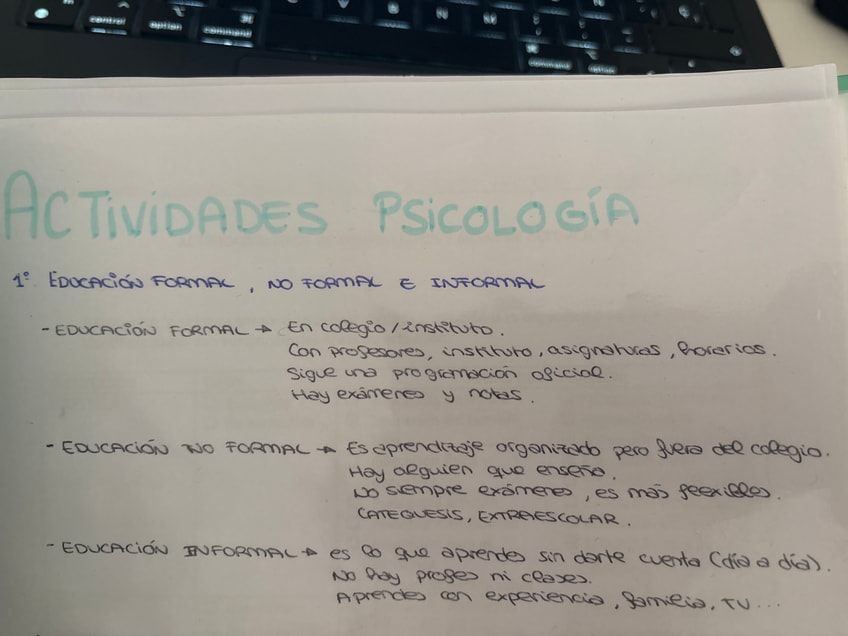 control
option
command
V
B
N
M
command
option
ACTIVIDADES PSICOLOGÍA
1º EDUCACIÓN FORMAL, NO FORMAL E INFORMAL
- EDUCACIÓN FORMAL → En colegio/instituto.
Con profesores, instituto, asignaturas, horarios.
Sigue una programación oficial.
Hay exámenes y notas.
- EDUCACIÓN NO FORMAL → Es aprendizaje organizado pero fuera del colegio.
Hay alguien que enseña.
No siempre exámenes, es más flexibles.
CATEQUESIS, EXTRAESCOLAR.
- EDUCACIÓN INFORMAL → es lo que aprendes sin darte cuenta (día a día).
No hay profes ni clases.
Aprendes con experiencia, familia, TV...